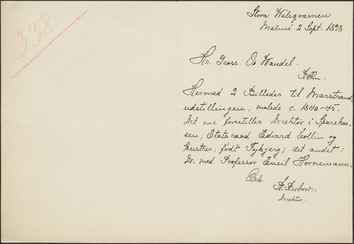 338
Stora Walqvarnen
Malmö 2 Sept. 1898
Hr. Grosr. Os. Wandel.
Kbhn.
Hermed 2 Billeder til Marstrand
udstillingen, malede c. 1840-45.
Det ene forestiller Direktør i Sparekas
sen, Etatsraad Edvard Collin og
Hustru, født Thyberg; det andet:
Dr. med. Professor Emil Hornemann.